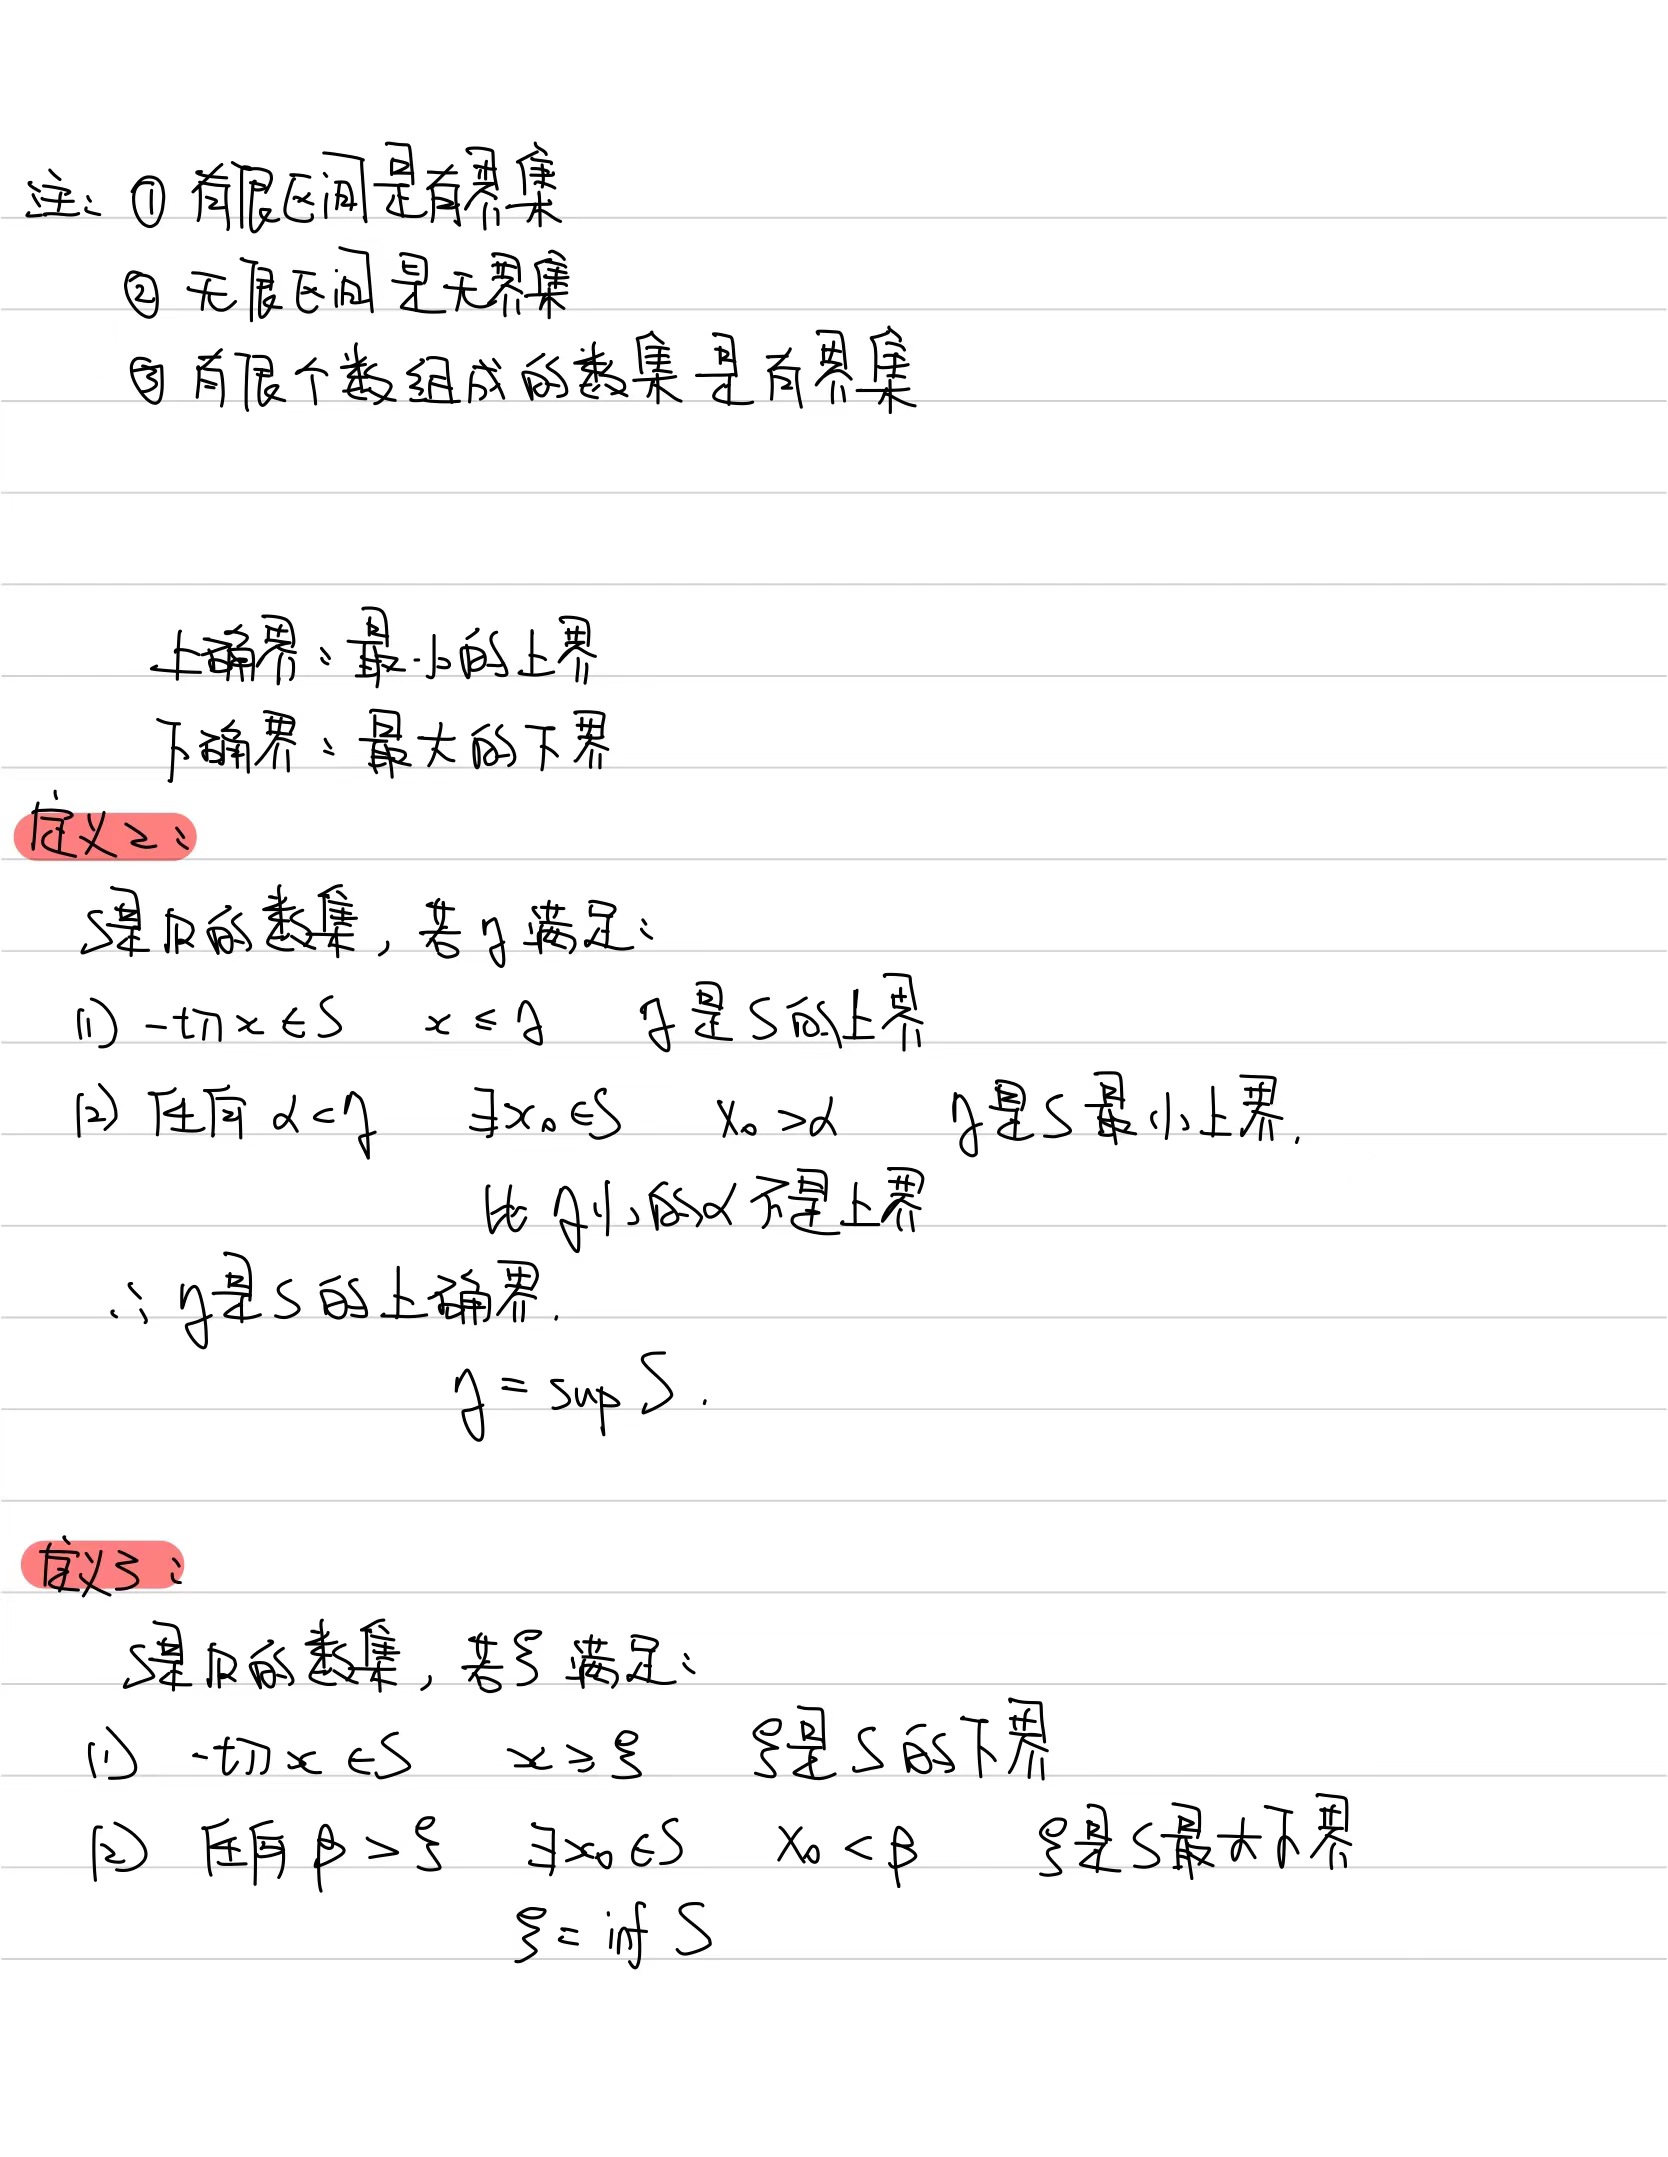 注: ① 有限区间是有界集
② 无限区间是无界集
③ 有限个数组成的数集是有界集
上确界: 最小的上界
下确界: 最大的下界
定义2:
S是R的数集, 若η满足:
(1) 一切x∈S x≤η η是S的上界
(2) 任何α<η ∃x₀∈S x₀>α η是S最小上界.
比η小的α不是上界
∴η是S的上确界.
η=sup S.
定义3:
S是R的数集, 若ξ满足:
(1) 一切x∈S x≥ξ ξ是S的下界
(2) 任何β>ξ ∃x₀∈S x₀<β ξ是S最大下界
ξ=inf S